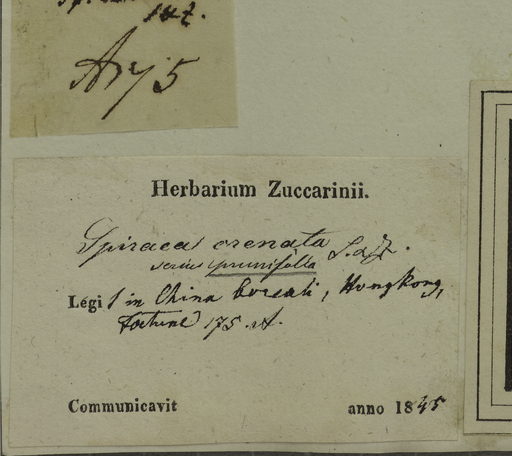 A 75
Herbarium Zuccarinii.
Spiraea crenata
serius prunifolia
Legi in China boreali, Hongkong,
Fortune 175. A.
Communicavit anno 1845